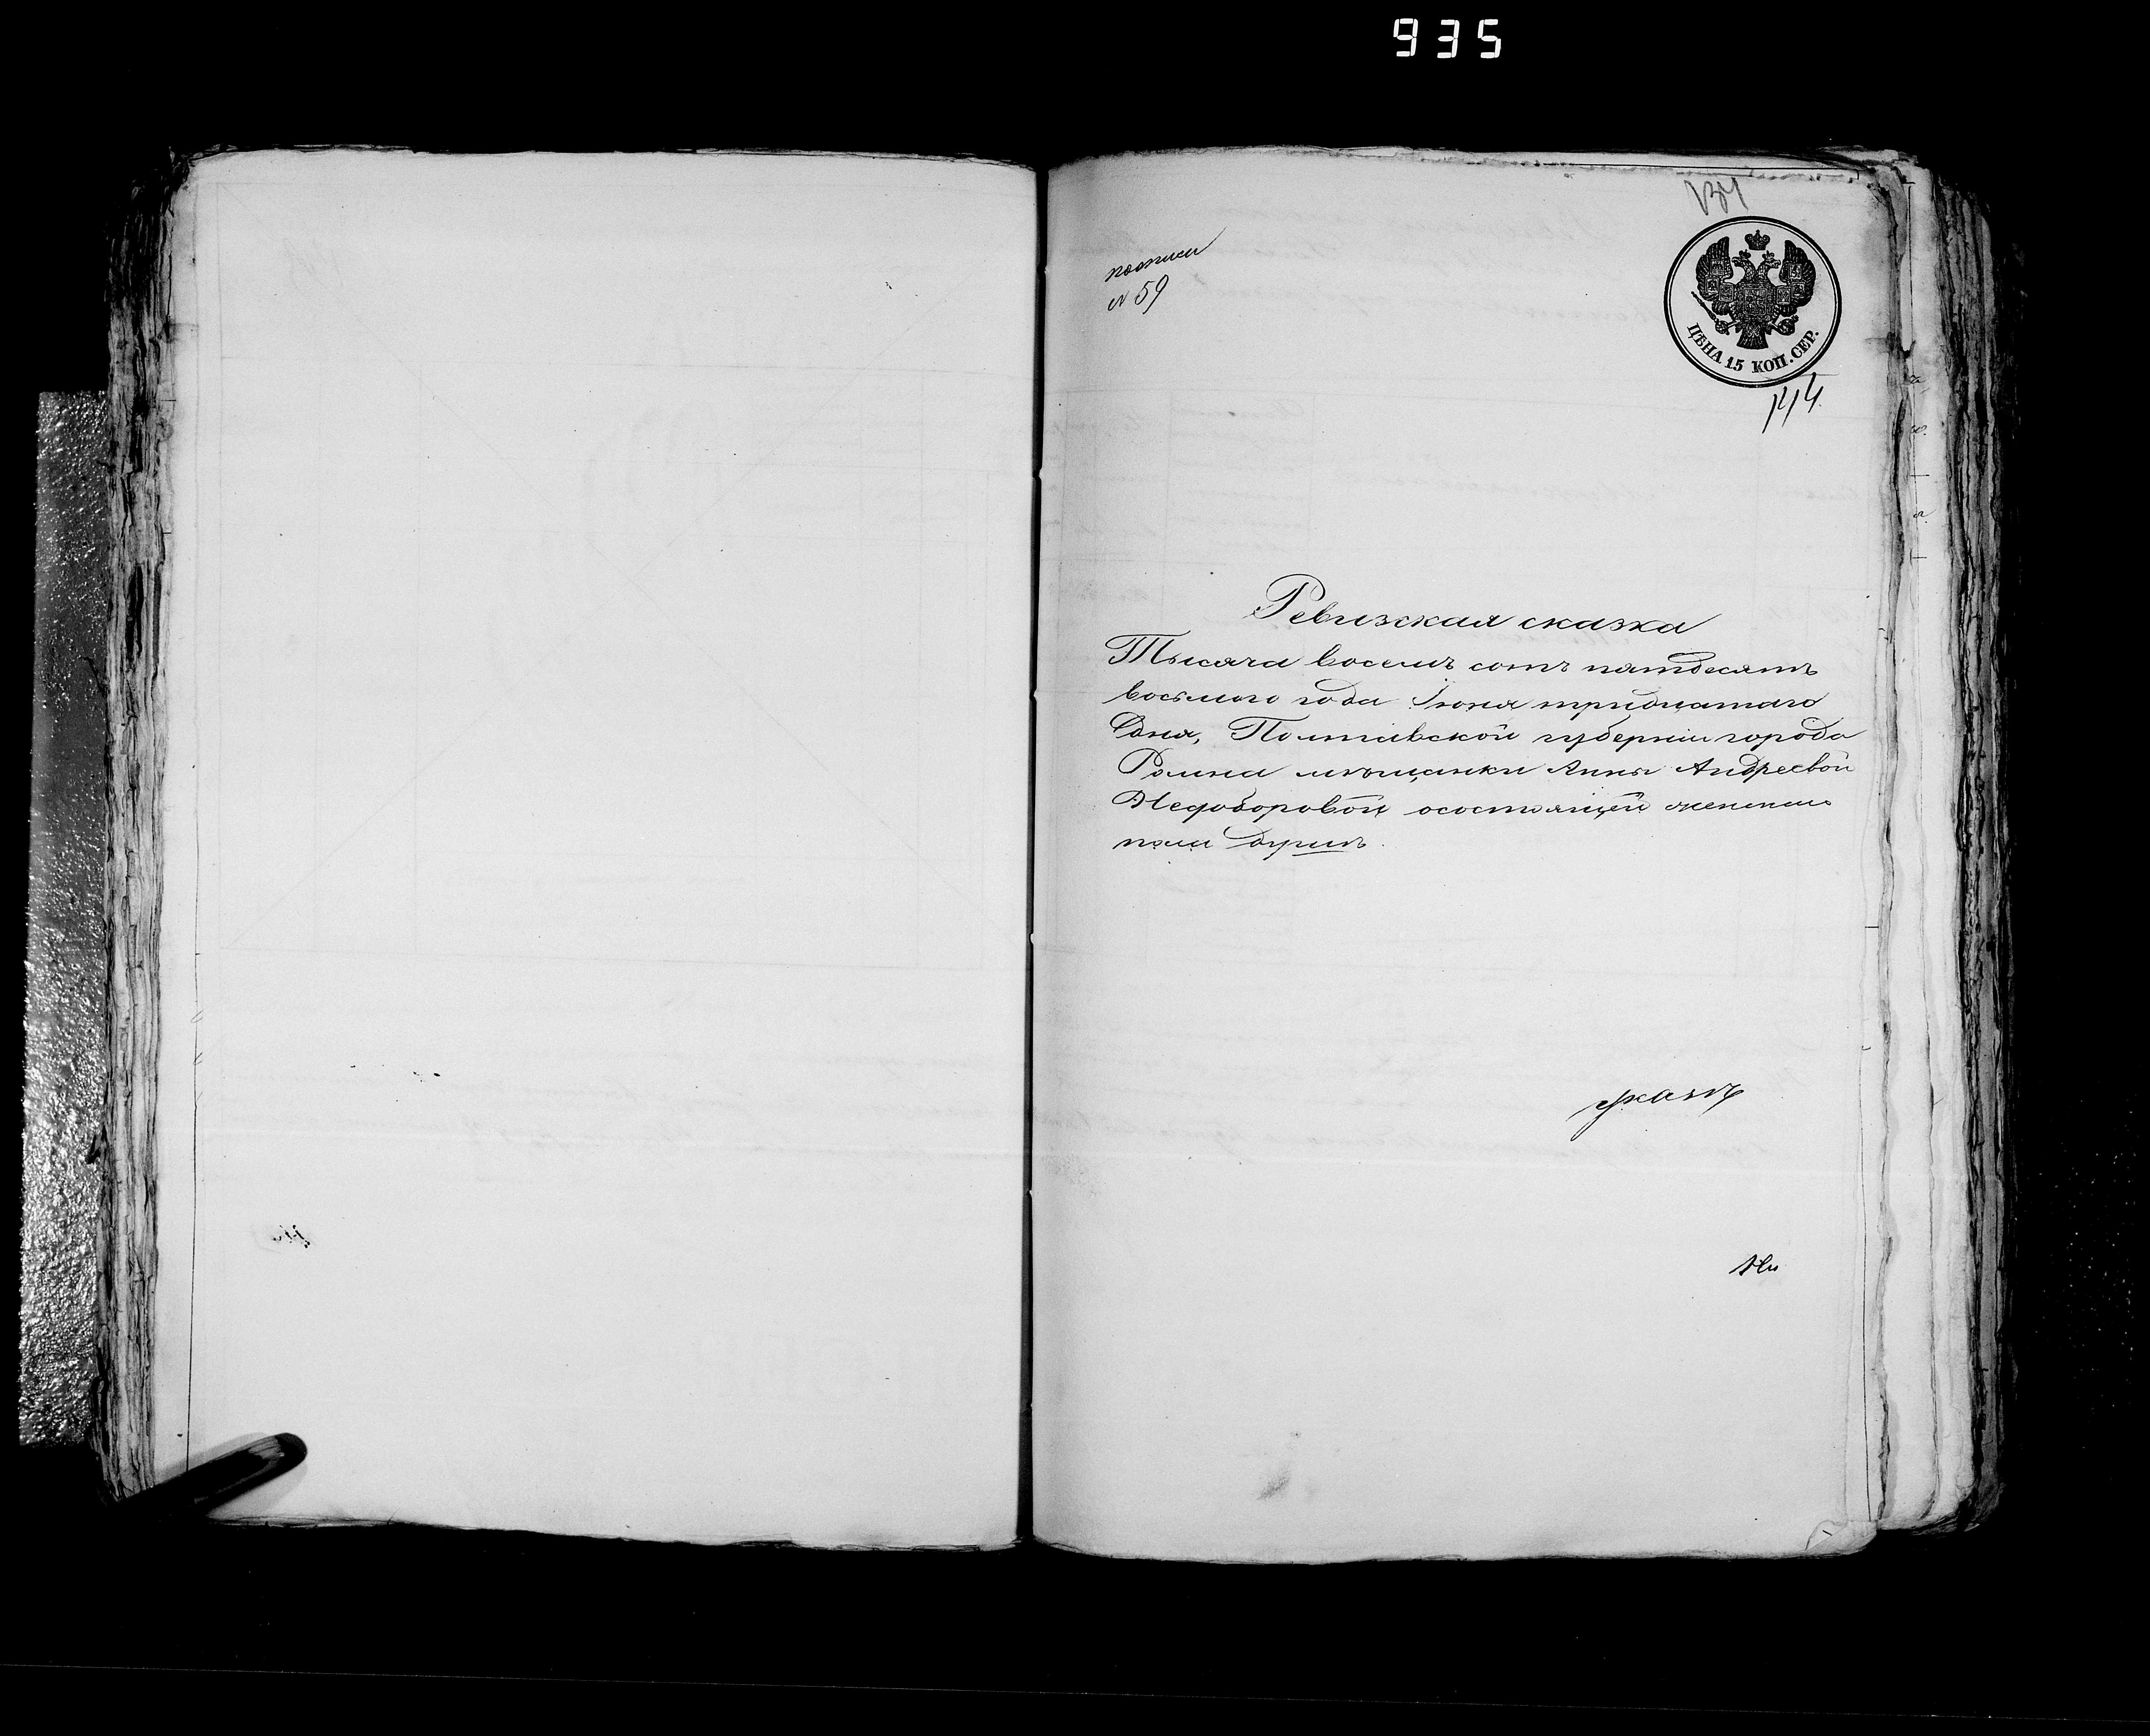 935
134
пописи
N 59
ЦѢНА 15 КОП. СЕР.
144.
Ревизская сказка
Тысяча восемь сотъ пятдесятъ
восьмого года Іюня тридцатаго
дня, Полтавской губерніи города
Ромна мѣщанки Анны Андреевой
осостоящей женска
пола душъ.